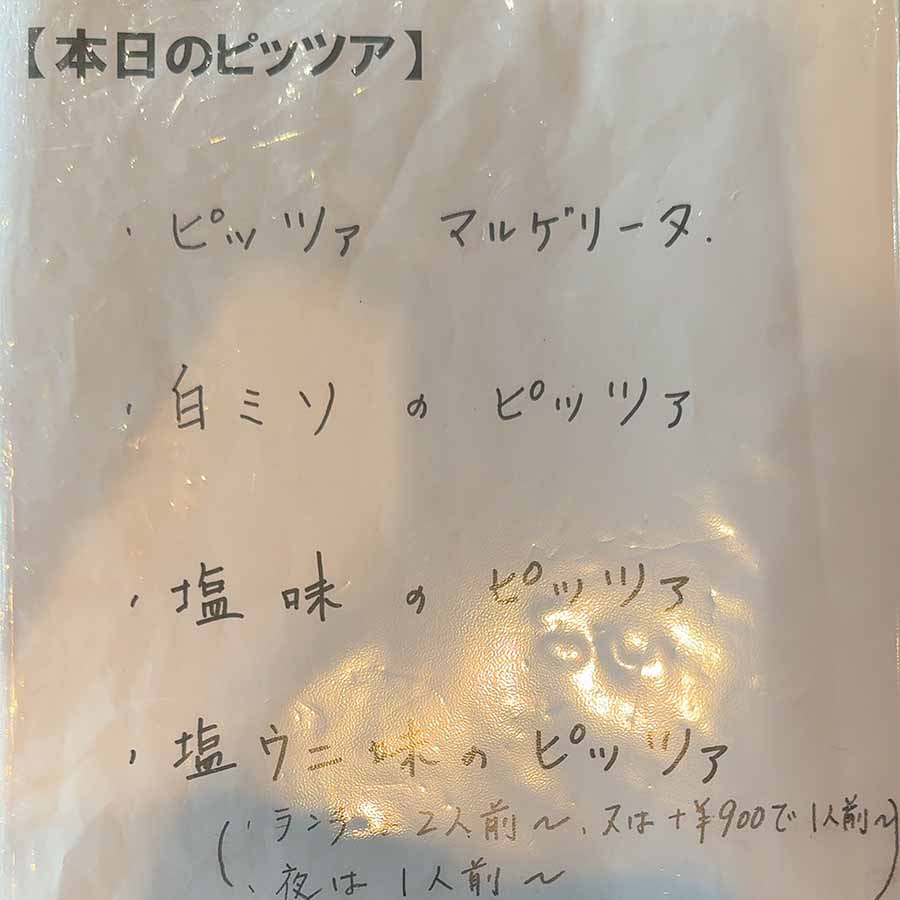 【本日のピッツア】
・ピッツァ マルゲリータ.
・白ミソのピッツァ
・塩味のピッツァ
・塩ウニ味のピッツァ
(・ランチ 2人前〜、又は+¥900で1人前〜)
・夜は1人前〜